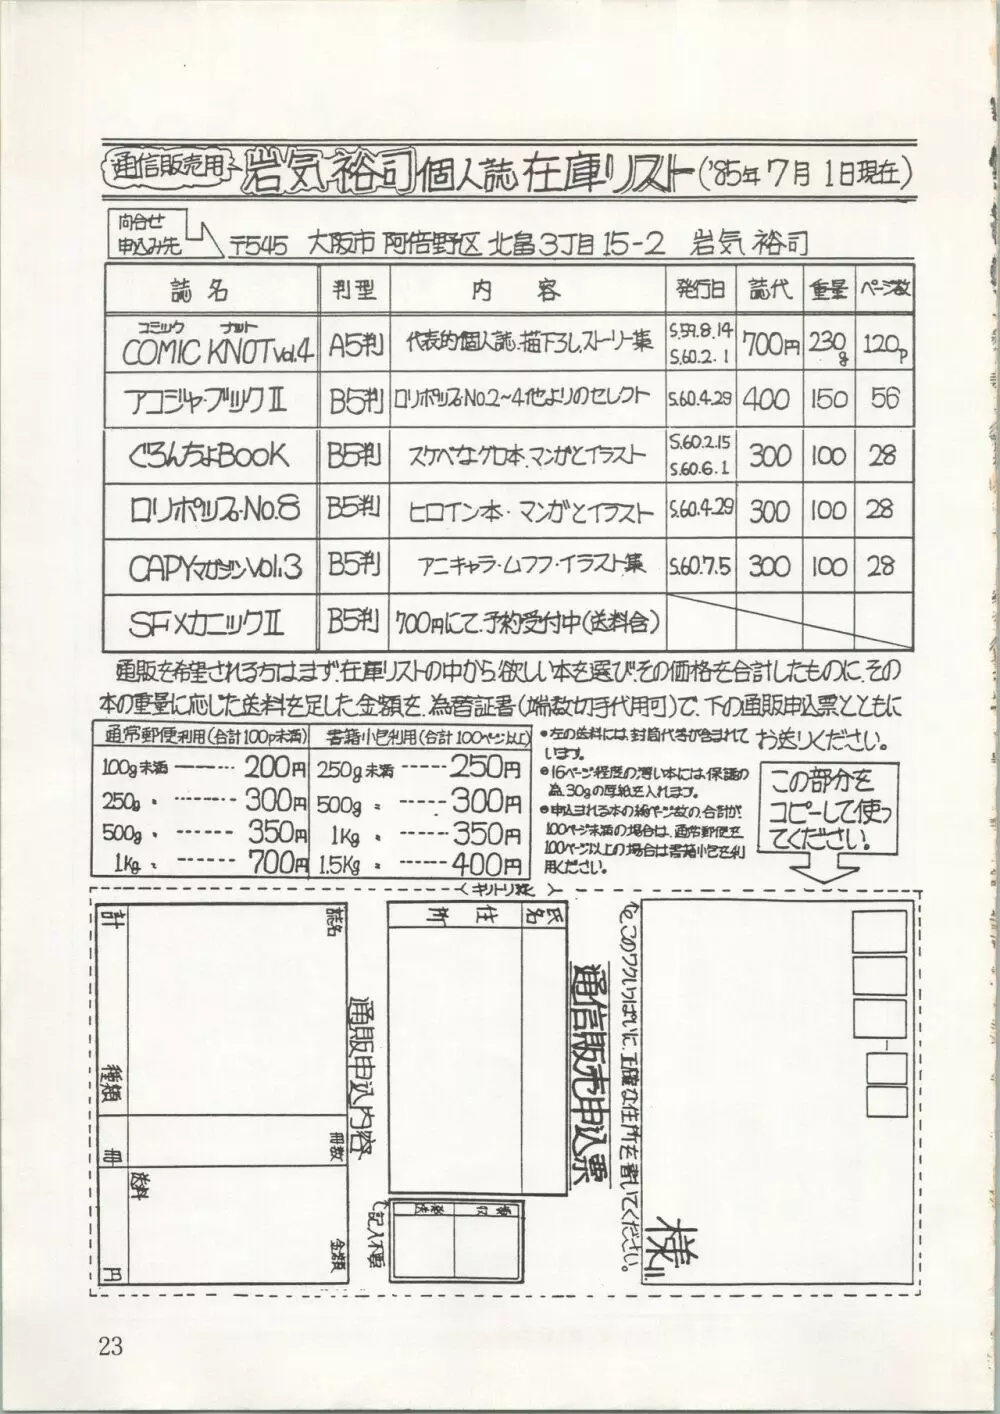 通信販売用 岩気裕司個人誌在庫リスト('85年7月1日現在)
問合せ
申込み先
〒545 大阪市阿倍野区北畠3丁目15-2 岩気裕司
誌名 判型 内容 発行日 誌代 重量 ページ数
コミック ナット
COMIC KNOT Vol.4 A5判 代表的個人誌、描下ろし、ストーリー集 S.59.8.14 S.60.2.1 700円 230g 120p
アコジャ・ブックⅡ B5判 ロリポップ・No.2~4他よりのセレクト S.60.4.29 400 150 56
ぐろんちょBooK B5判 スケベなグロ本、マンガとイラスト S.60.2.15 S.60.6.1 300 100 28
ロリポップ・No.8 B5判 ヒロイン本・マンガとイラスト S.60.4.29 300 100 28
CAPYマガジンVol.3 B5判 アニキャラ・ムフフ・イラスト集 S.60.7.5 300 100 28
SFメカニックⅡ B5判 700円にて、予約受付中(送料含)
通販を希望される方はまず、在庫リストの中から欲しい本を選び、その価格を合計したものに、その
本の重量に応じた送料を足した金額を、為替証書(端数切手代用可)で、下の通販申込票とともに
お送りください。
通常郵便利用(合計100p未満)
100g未満 200円
250g 〃 300円
500g 〃 350円
1Kg 〃 700円
書籍小包利用(合計100ページ以上)
250g未満 250円
500g 〃 300円
1Kg 〃 350円
1.5Kg 〃 400円
●左の送料には、封筒代等が含まれて
います。
●16ページ程度の薄い本には、保護の
為、30gの厚紙を入れます。
●申込まれる本の総ページ数の合計が、
100ページ未満の場合は、通常郵便を
100ページ以上の場合は書籍小包を利
用ください。
この部分を
コピーして使っ
てください。
キリトリ線
様
このワクいっぱいに、正確な住所を書いてください。
通信販売申込票
氏名
住所
(記入不要)
通販申込内容
誌名
冊数
金額
送料
計 種類 冊 円
23